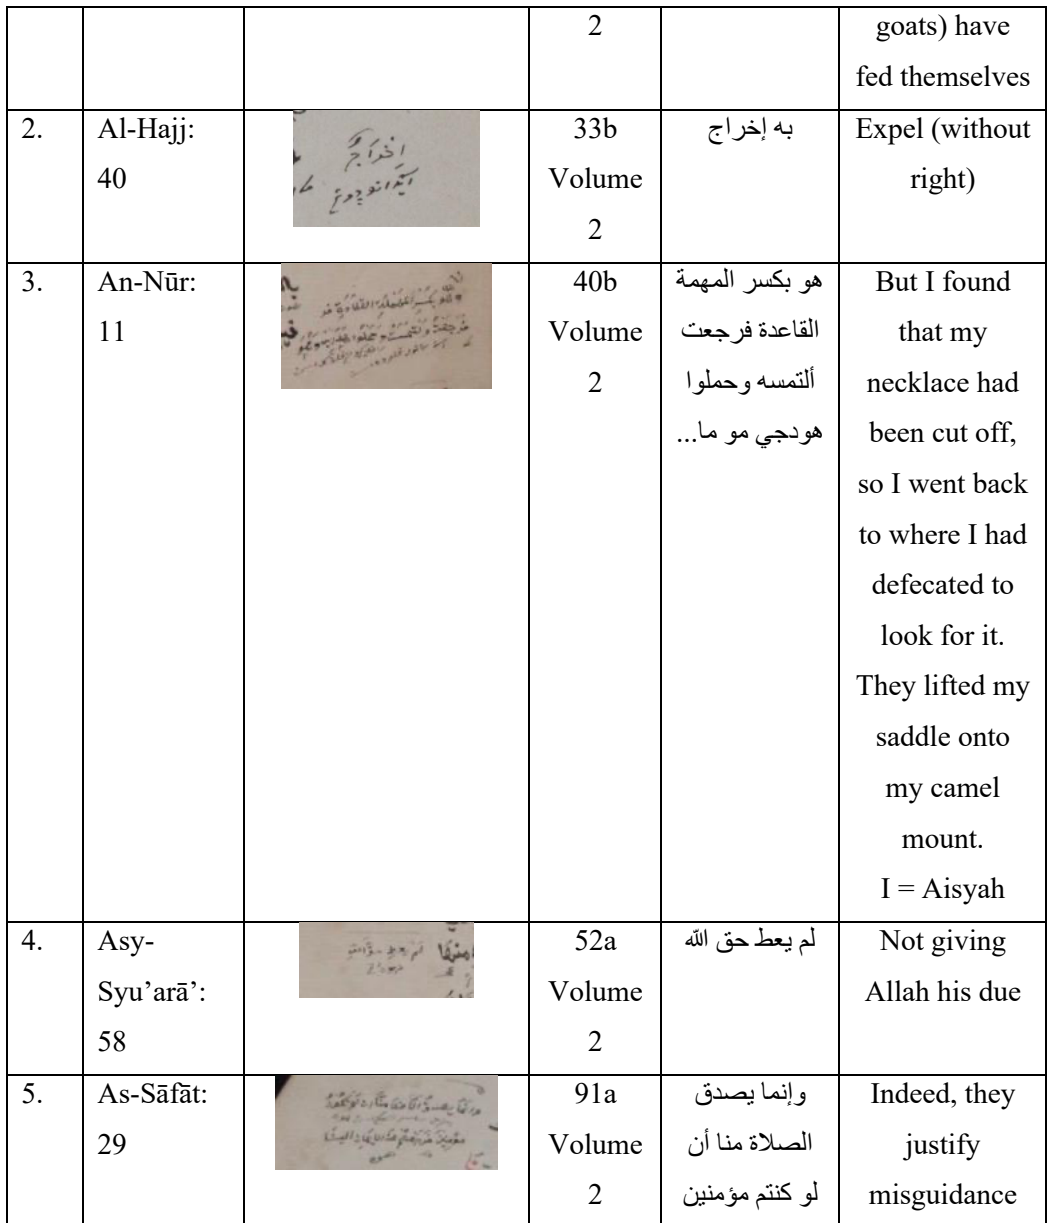 2
goats) have
fed themselves
2.
Al-Hajj:
40
اخراج
33b
Volume
2
به إخراج
Expel (without
right)
3.
An-Nūr:
11
40b
Volume
2
هو بكسر المهمة
القاعدة فرجعت
ألتمسه وحملوا
هودجي مو ما...
But I found
that my
necklace had
been cut off,
so I went back
to where I had
defecated to
look for it.
They lifted my
saddle onto
my camel
mount.
I = Aisyah
4.
Asy-
Syu’arā’:
58
52a
Volume
2
لم يعط حق الله
Not giving
Allah his due
5.
As-Sāfāt:
29
91a
Volume
2
وإنما يصدق
الصلاة منا أن
لو كنتم مؤمنين
Indeed, they
justify
misguidance